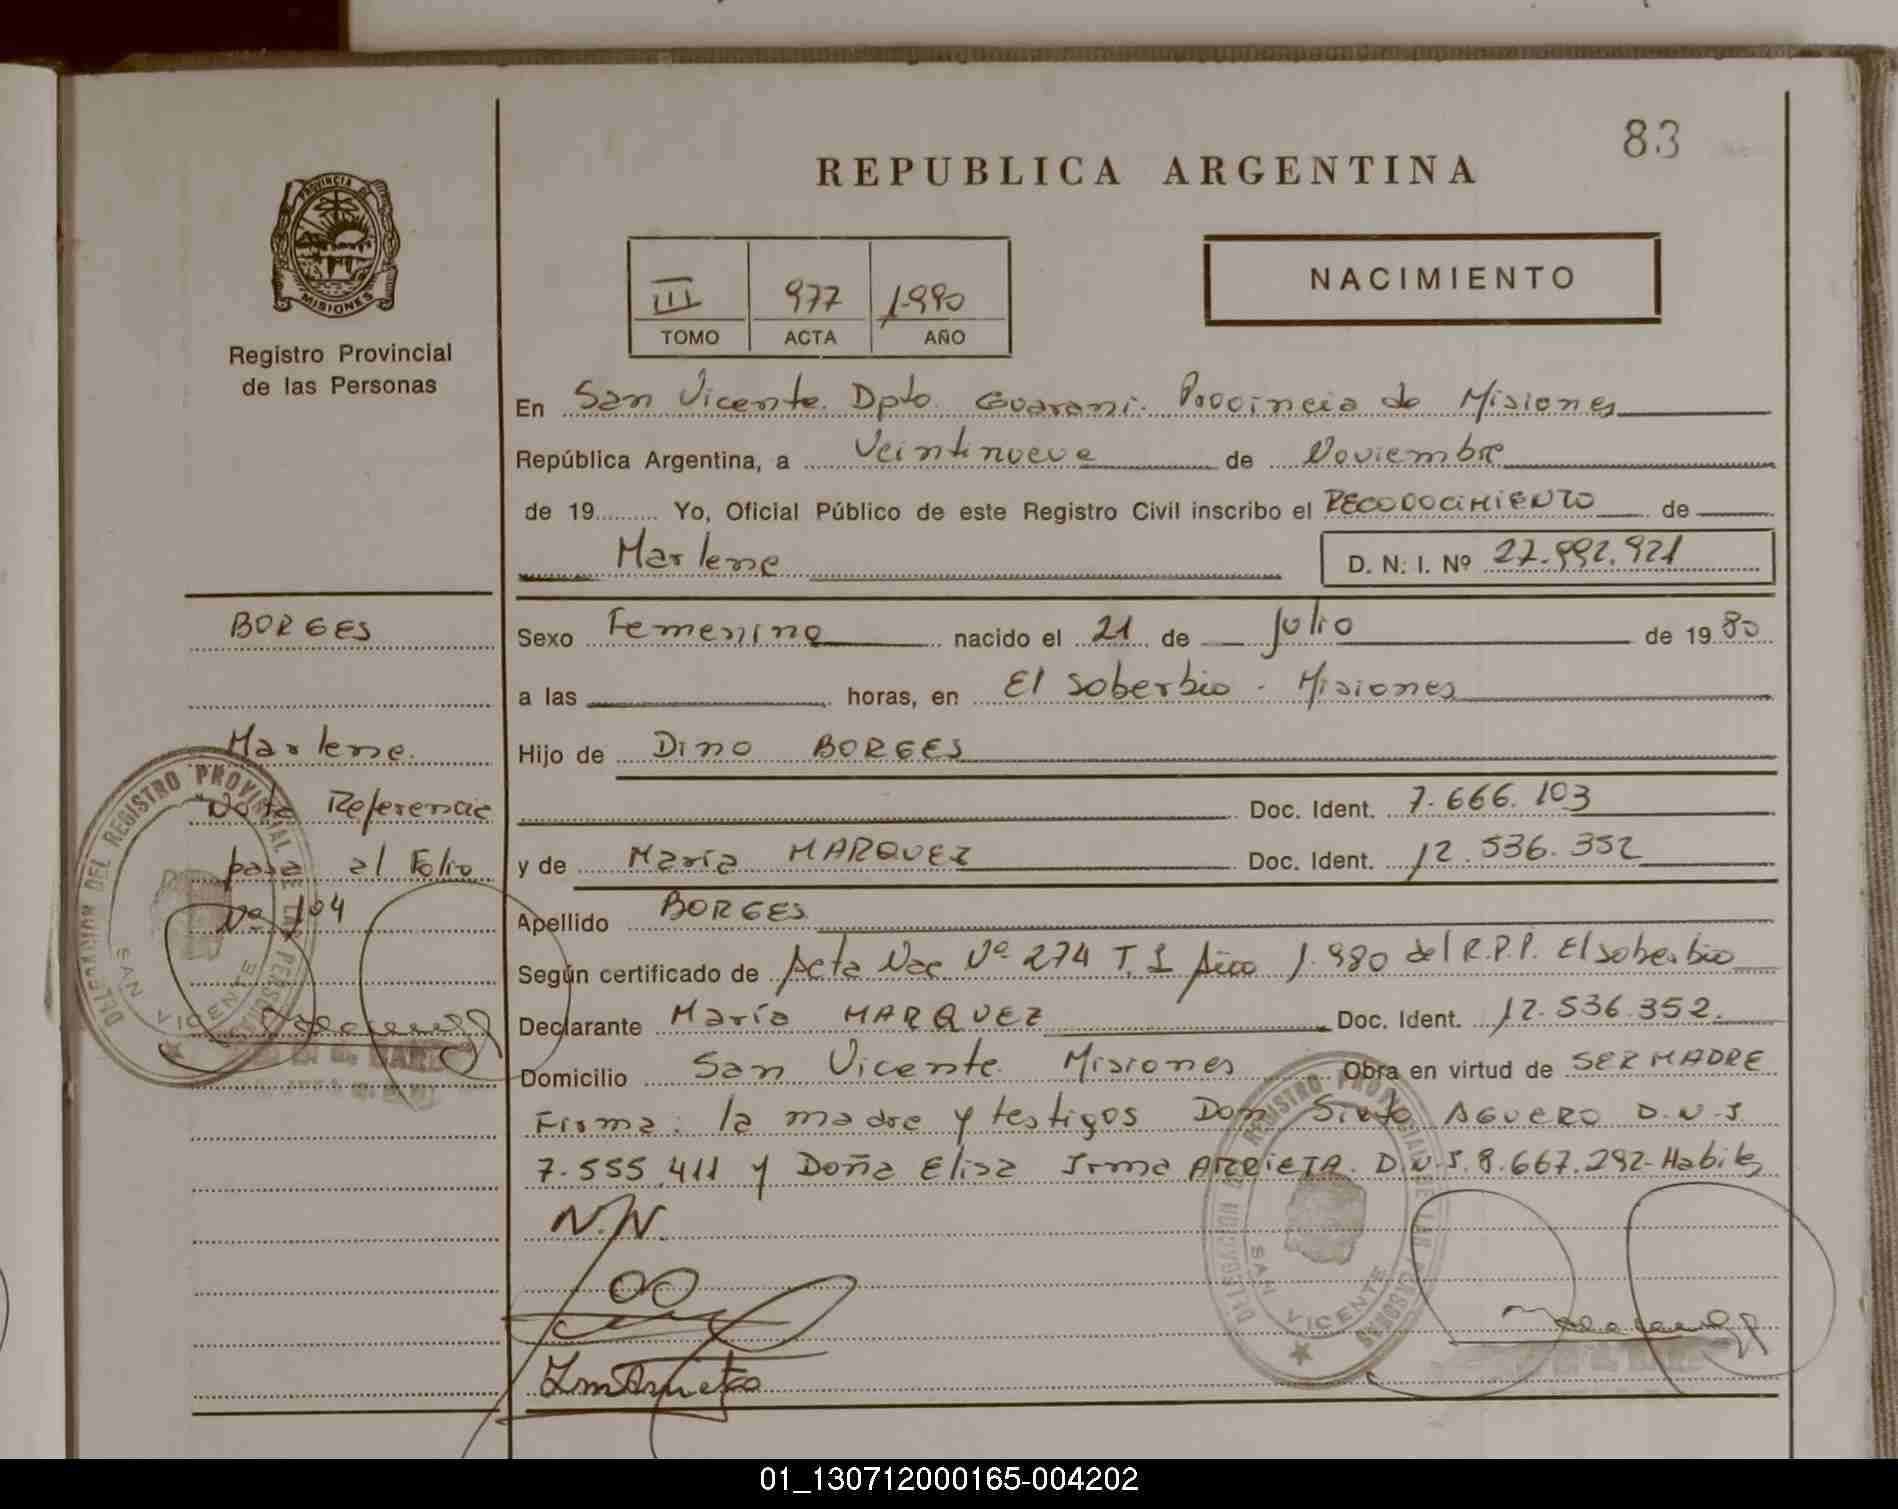 83
REPUBLICA ARGENTINA
PROVINCIA DE
MISIONES
Registro Provincial
de las Personas
III 977 1.990
TOMO ACTA AÑO
NACIMIENTO
En San Vicente. Dpto. Guarani. Provincia de Misiones
República Argentina, a Veintinueve de Noviembre
de 19 Yo, Oficial Público de este Registro Civil inscribo el RECONOCIMIENTO de
Marlene D. N. I. Nº 27.992.921
BORGES
Marlene.
Nota Referencia
pasa al Folio
Nº 104
Sexo Femenino nacido el 21 de Julio de 1980
a las horas, en El Soberbio - Misiones
Hijo de Dino BORGES
Doc. Ident. 7.666.103
y de María MARQUEZ Doc. Ident. 12.536.352
Apellido BORGES
Según certificado de Acta Nac Nº 274 T. I Año 1.980 del R.P.P. El Soberbio
Declarante María MARQUEZ Doc. Ident. 12.536.352.
Domicilio San Vicente Misiones Obra en virtud de SER MADRE
Firma: la madre y testigos Don Sixto AGUERO D.N.I.
7.555.411 y Doña Elisa Irma ARRIETA. D.N.I. 9.667.292- Habiles
N.N.
DELEGACION DEL REGISTRO PROVINCIAL DE LAS PERSONAS
SAN VICENTE
DELEGACION DEL REGISTRO PROVINCIAL DE LAS PERSONAS
SAN VICENTE
01_130712000165-004202